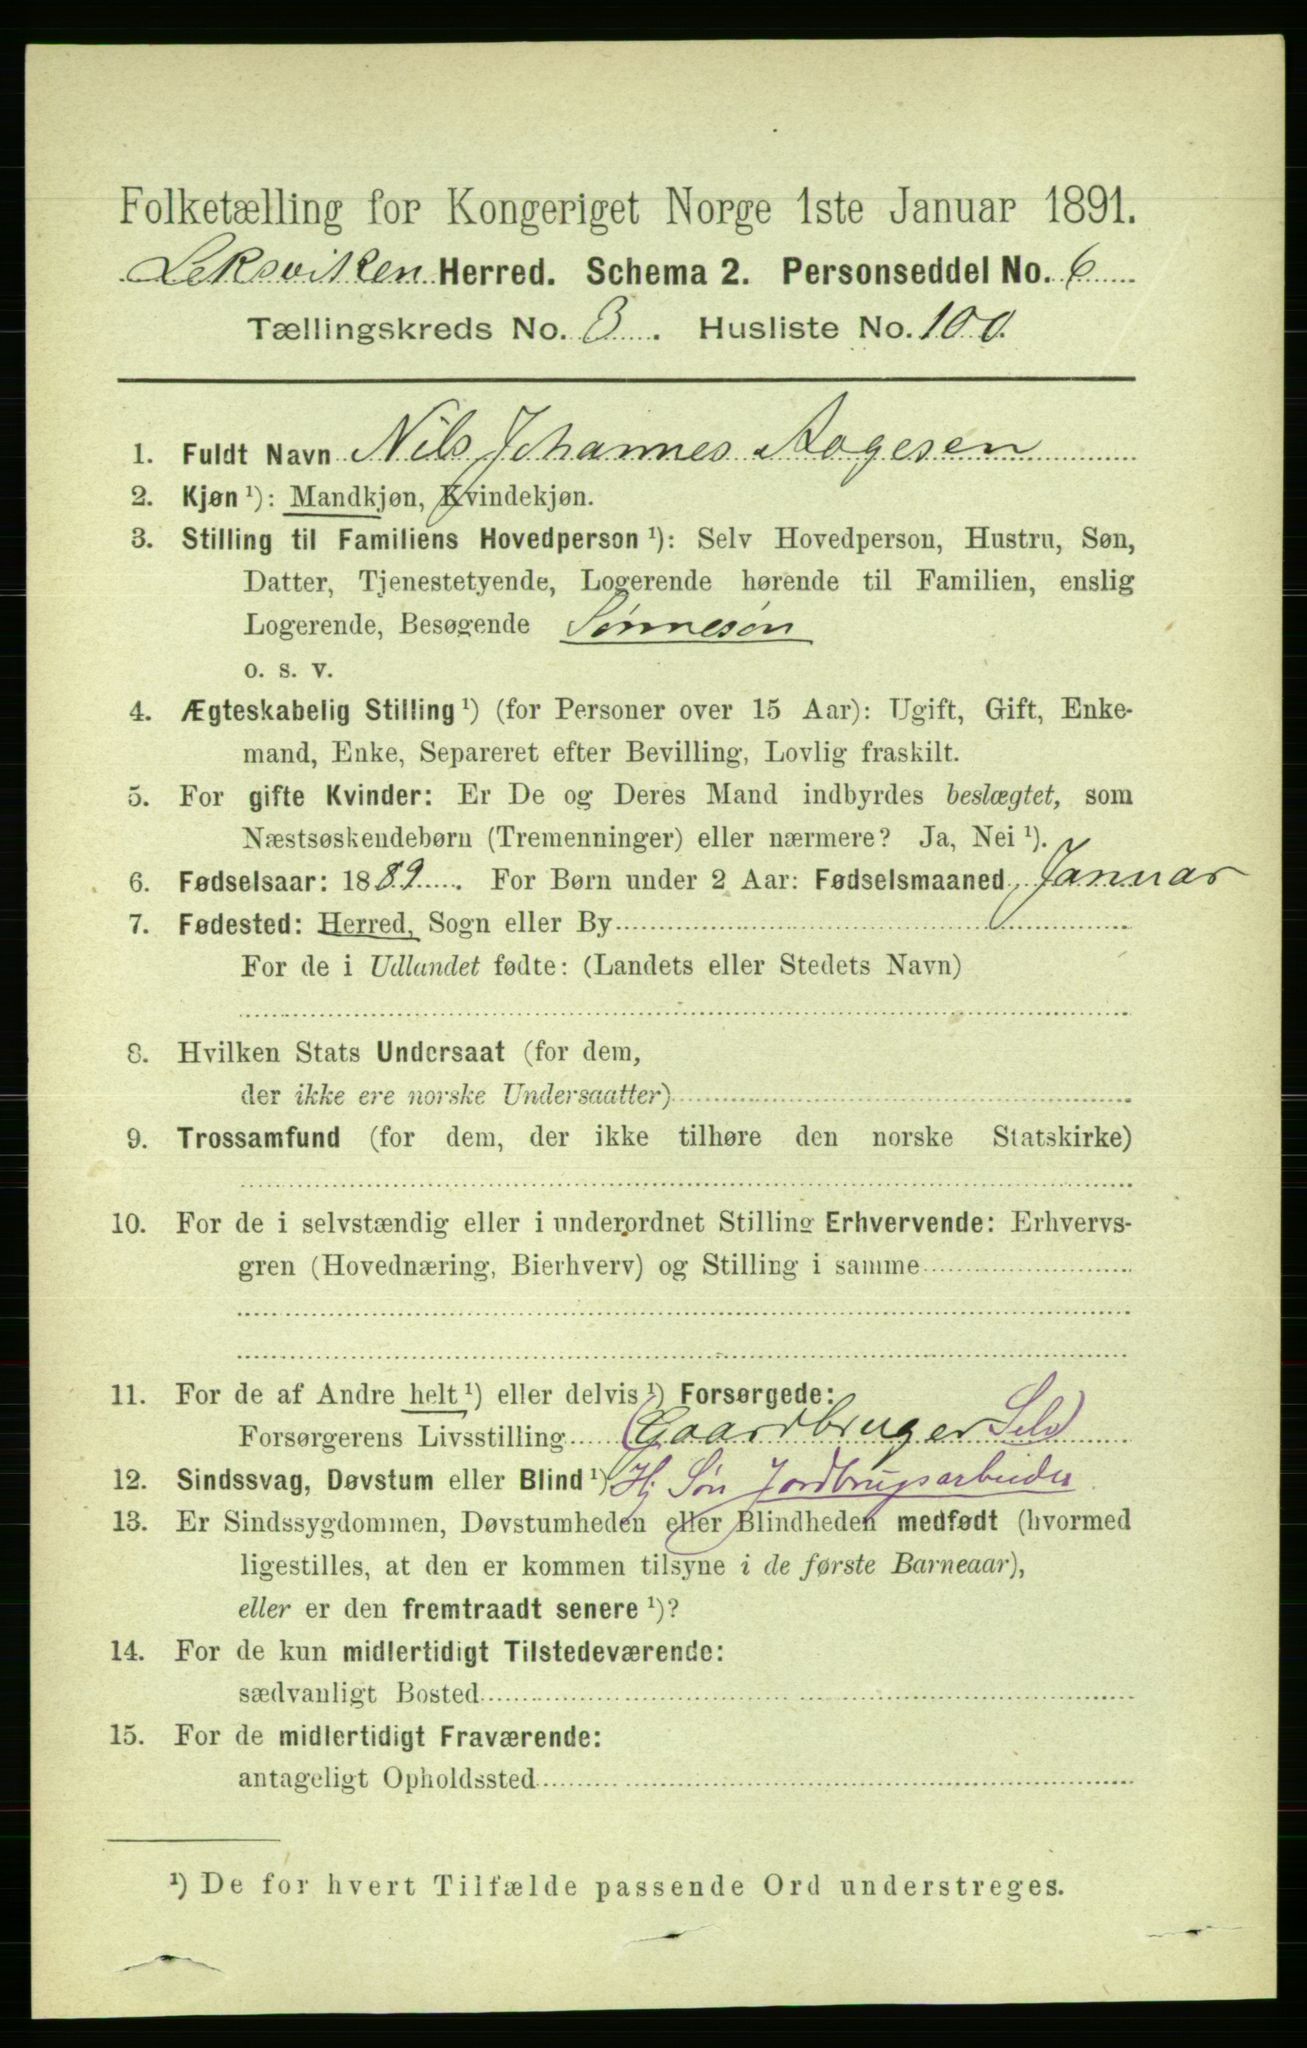 Folketælling for Kongeriget Norge 1ste Januar 1891.
Leksviken Herred. Schema 2. Personseddel No. 6
Tællingskreds No. 3. Husliste No. 100
1. Fuldt Navn Nils Johannes Aagesen
2. Kjøn ¹): Mandkjøn, Kvindekjøn.
3. Stilling til Familiens Hovedperson ¹): Selv Hovedperson, Hustru, Søn,
Datter, Tjenestetyende, Logerende hørende til Familien, enslig
Logerende, Besøgende Sønnesøn
o. s. v.
4. Ægteskabelig Stilling ¹) (for Personer over 15 Aar): Ugift, Gift, Enke-
mand, Enke, Separeret efter Bevilling, Lovlig fraskilt.
5. For gifte Kvinder: Er De og Deres Mand indbyrdes beslægtet, som
Næstsøskendebørn (Tremenninger) eller nærmere? Ja, Nei ¹).
6. Fødselsaar: 1889. For Børn under 2 Aar: Fødselsmaaned Januar
7. Fødested: Herred, Sogn eller By
For de i Udlandet fødte: (Landets eller Stedets Navn)
8. Hvilken Stats Undersaat (for dem,
der ikke ere norske Undersaatter)
9. Trossamfund (for dem, der ikke tilhøre den norske Statskirke)
10. For de i selvstændig eller i underordnet Stilling Erhvervende: Erhvervs-
gren (Hovednæring, Bierhverv) og Stilling i samme
11. For de af Andre helt ¹) eller delvis ¹) Forsørgede:
Forsørgerens Livsstilling (Gaardbruger Selv)
12. Sindssvag, Døvstum eller Blind ¹) Hj Søn Jordbrugsarbeider
13. Er Sindssygdommen, Døvstumheden eller Blindheden medfødt (hvormed
ligestilles, at den er kommen tilsyne i de første Barneaar),
eller er den fremtraadt senere ¹)?
14. For de kun midlertidigt Tilstedeværende:
sædvanligt Bosted
15. For de midlertidigt Fraværende:
antageligt Opholdssted
¹) De for hvert Tilfælde passende Ord understreges.